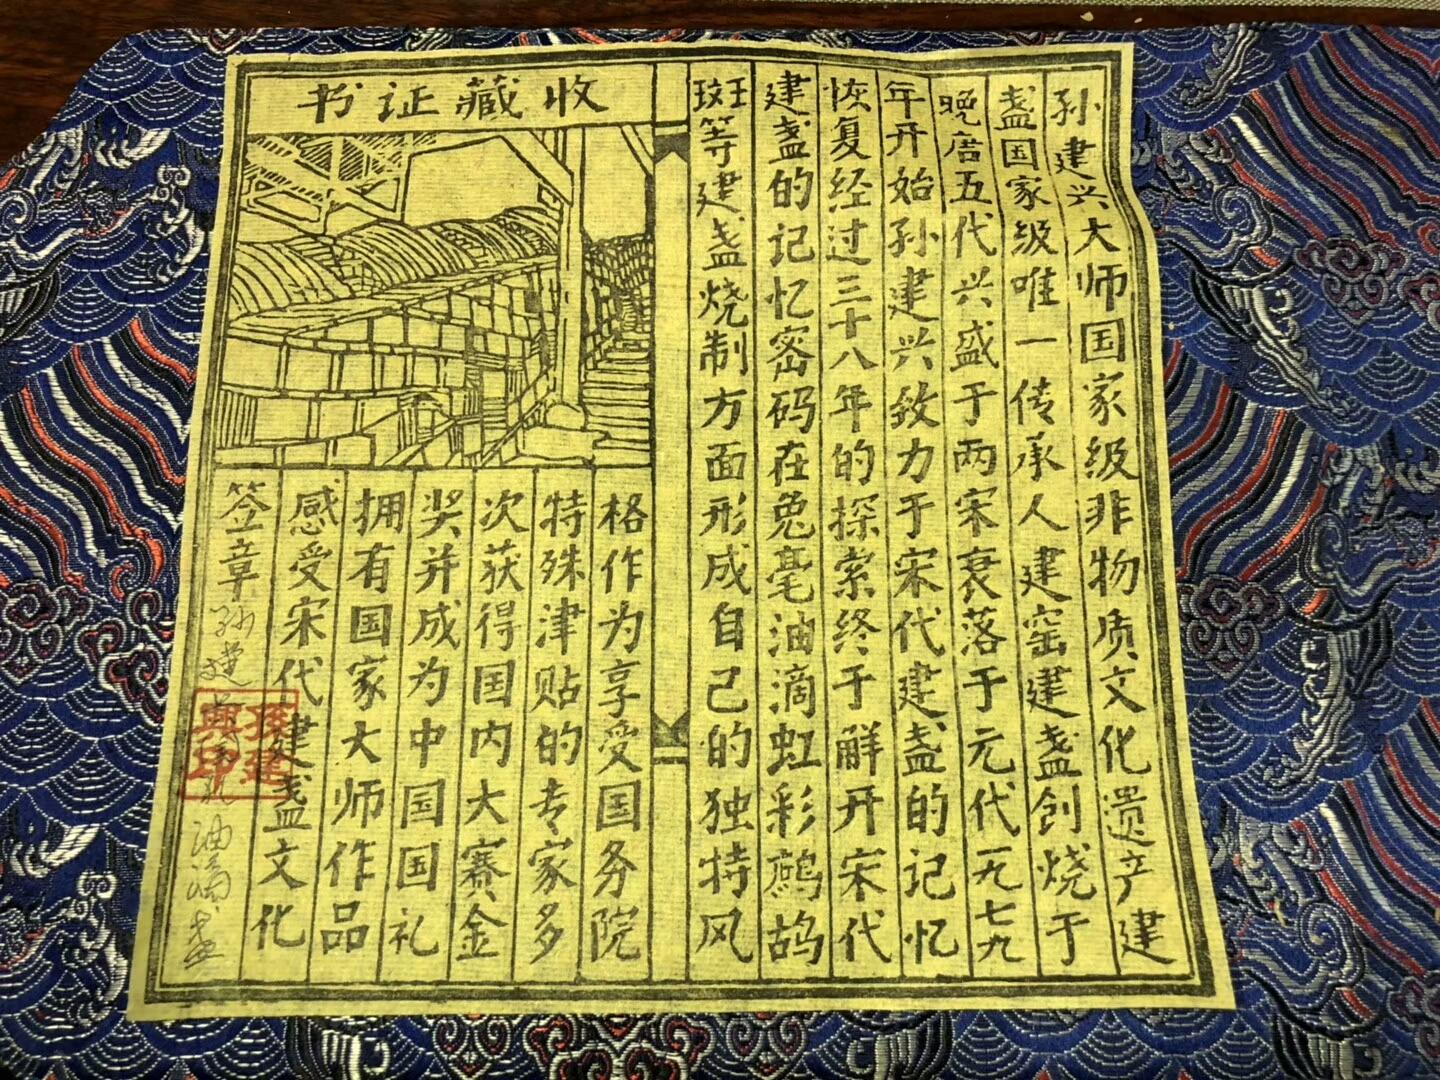 收藏证书
孙建兴大师国家级非物质文化遗产建
盏国家级唯一传承人建窑建盏创烧于
晚唐五代兴盛于两宋衰落于元代一九七九
年开始孙建兴致力于宋代建盏的记忆
恢复经过三十八年的探索终于解开宋代
建盏的记忆密码在兔毫油滴虹彩鹧鸪
斑等建盏烧制方面形成自己的独特风
格作为享受国务院
特殊津贴的专家多
次获得国内大赛金
奖并成为中国国礼
拥有国家大师作品
感受宋代建盏文化
签章 孙建 油滴盏
孫建
興印